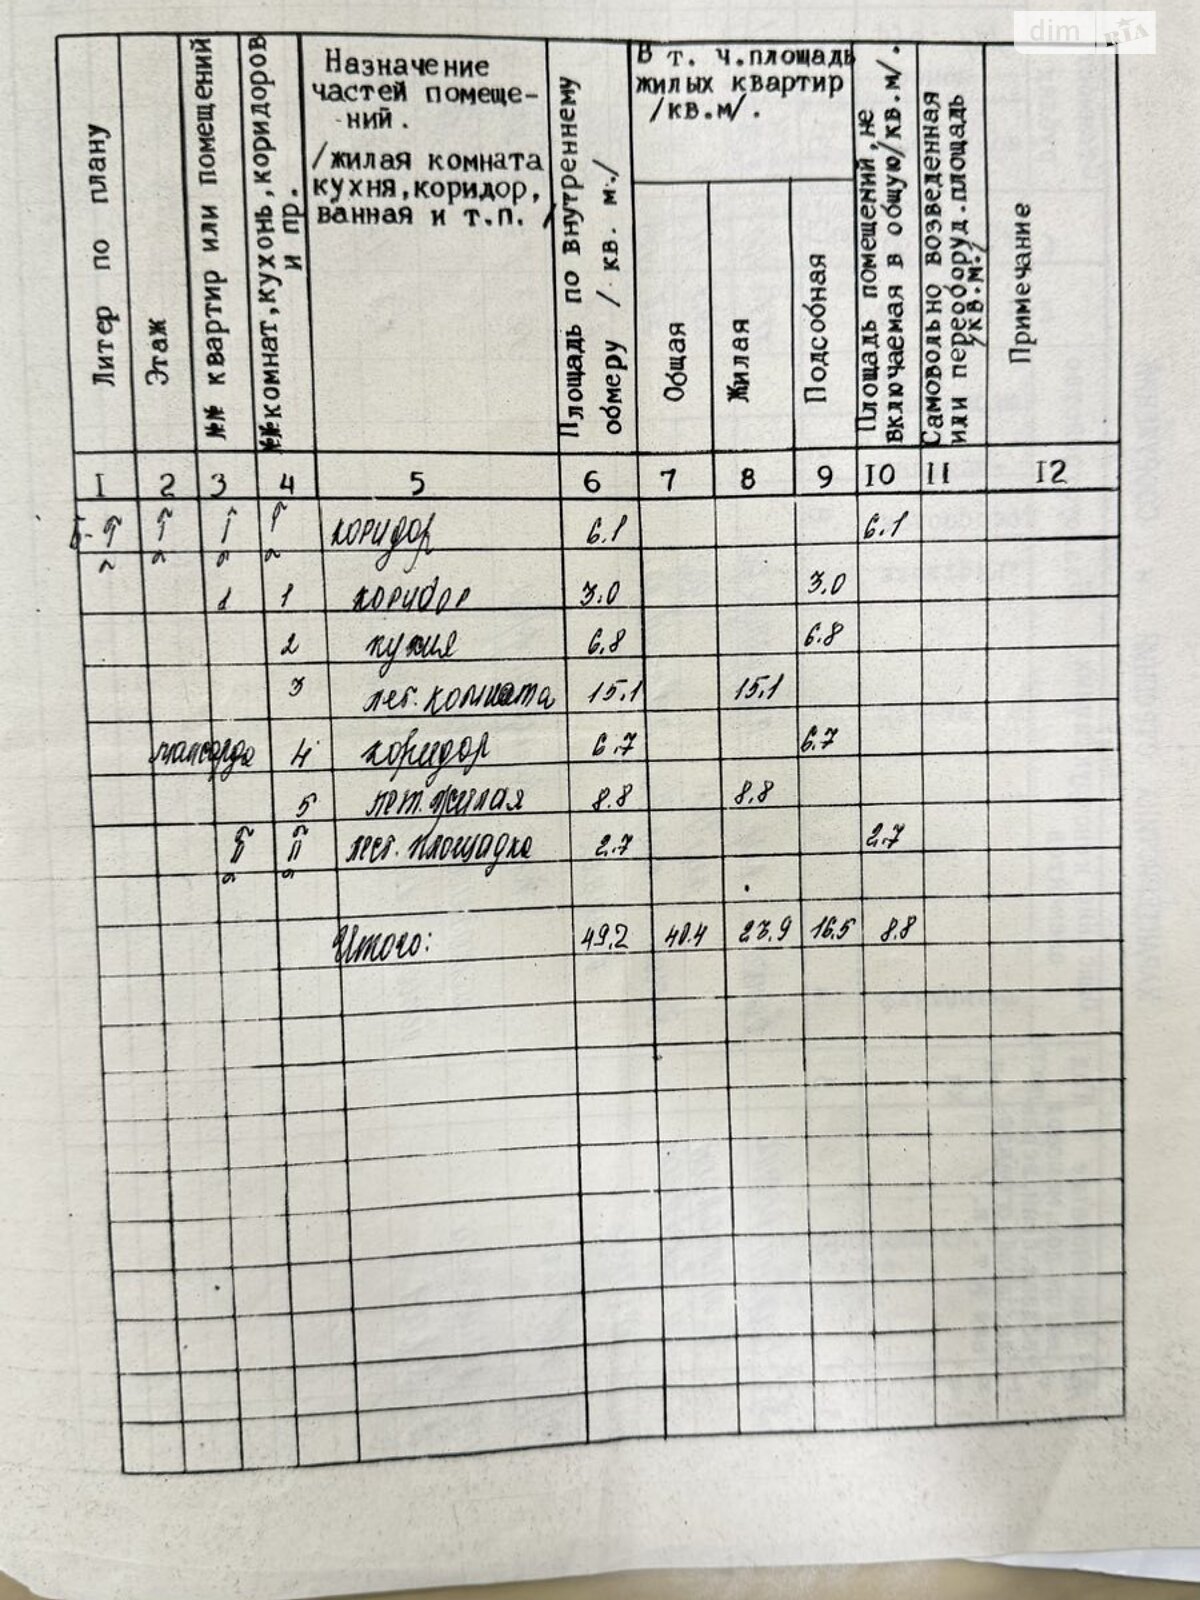 dim RIA
Литер по плану
Этаж
№№ квартир или помещений
№№ комнат, кухонь, коридоров
и пр.
Назначение
частей помеще-
ний.
/жилая комната
кухня, коридор,
ванная и т.п. /
Площадь по внутреннему
обмеру / кв. м./
В т. ч. площадь
жилых квартир
/кв.м/.
Общая
Жилая
Подсобная
Площадь помещений, не
включаемая в общую/кв.м/.
Самовольно возведенная
или переоборуд. площадь
/кв.м./
Примечание
I 2 3 4 5 6 7 8 9 IO II I2
коридор 6.1 6.1
1 1 коридор 3.0 3.0
2 кухня 6.8 6.8
3 лет. комната 15.1 15.1
мансарда 4 коридор 6.7 6.7
5 лет. жилая 8.8 8.8
лест. площадка 2.7 2.7
Итого: 49.2 40.4 23.9 16.5 8.8